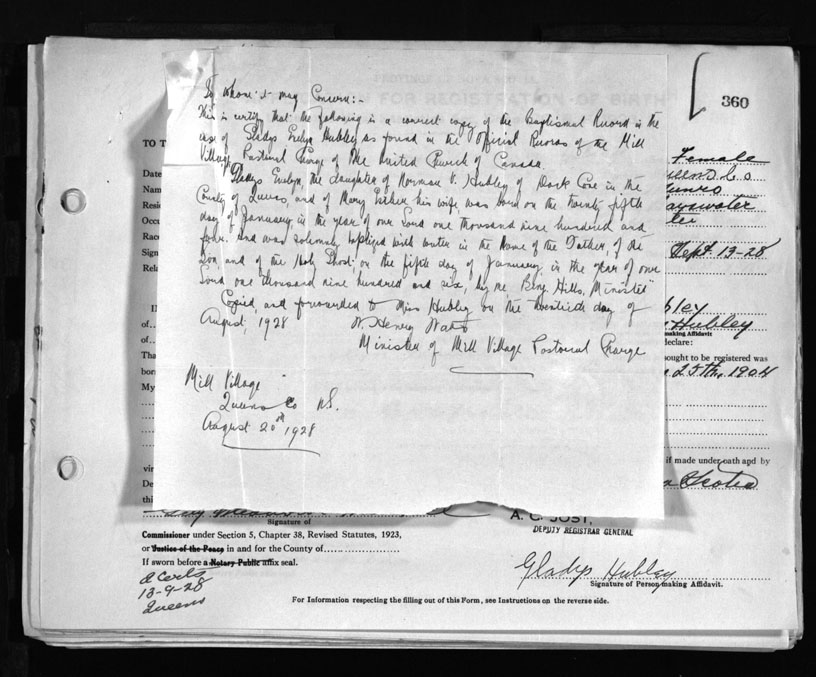 To whom it may Concern:-
This is certify that the following is a correct copy of the Baptismal Record in the
case of Gladys Evelyn Hubley as found in the Official Records of the Mill
Village Pastoral Charge of The United Church of Canada.
"Gladys Evelyn, the daughter of Norman V. Hubley of Port Cove in the
County of Queens, and of Mary Esther his wife, was born on the twenty fifth
day of January, in the year of our Lord one thousand nine hundred and
four. And was solemnly baptized with water in the Name of the Father, of the
Son, and of the Holy Ghost on the fifth day of January, in the year of our
Lord one thousand nine hundred and six, by me Benj. Hills, Minister"
Copied, and forwarded to Miss Hubley on the twentieth day of
August, 1928
W. Henry
Minister of Mill Village Pastoral Charge
Mill Village
Queens Co N.S.
August 20th, 1928
360
FOR REGISTRATION OF BIRTH
TO T
Date
Nam
Resi
Occu
Race
Sign
Rela
Female
Queens Co
Bayswater
Sept. 13-28
bley
Hubley
making Affidavit
declare:
ought to be registered was
25th, 1904
of..
of..
Tha
born
My
if made under oath and by
Scotia
this
Signature of
A. C. JOST,
DEPUTY REGISTRAR GENERAL
Commissioner under Section 5, Chapter 38, Revised Statutes, 1923,
or Justice of the Peace in and for the County of
If sworn before a Notary Public affix seal.
Gladys Hubley
Signature of Person making Affidavit.
13-9-28
Queens
For Information respecting the filling out of this Form, see Instructions on the reverse side.